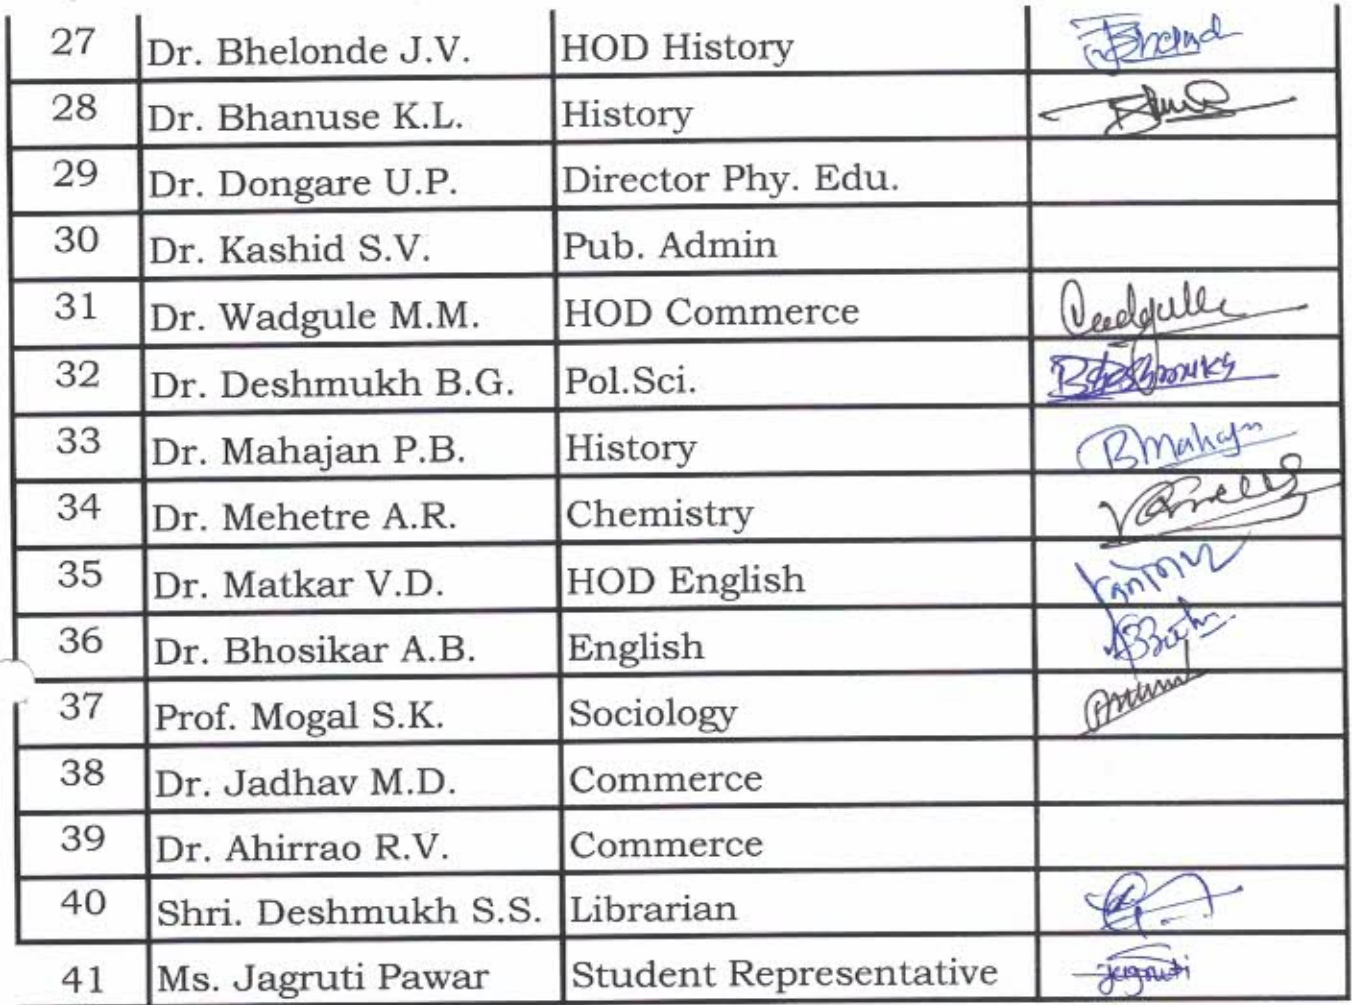 27 Dr. Bhelonde J.V. HOD History
28 Dr. Bhanuse K.L. History
29 Dr. Dongare U.P. Director Phy. Edu.
30 Dr. Kashid S.V. Pub. Admin
31 Dr. Wadgule M.M. HOD Commerce
32 Dr. Deshmukh B.G. Pol.Sci.
33 Dr. Mahajan P.B. History
34 Dr. Mehetre A.R. Chemistry
35 Dr. Matkar V.D. HOD English
36 Dr. Bhosikar A.B. English
37 Prof. Mogal S.K. Sociology
38 Dr. Jadhav M.D. Commerce
39 Dr. Ahirrao R.V. Commerce
40 Shri. Deshmukh S.S. Librarian
41 Ms. Jagruti Pawar Student Representative Jagruti